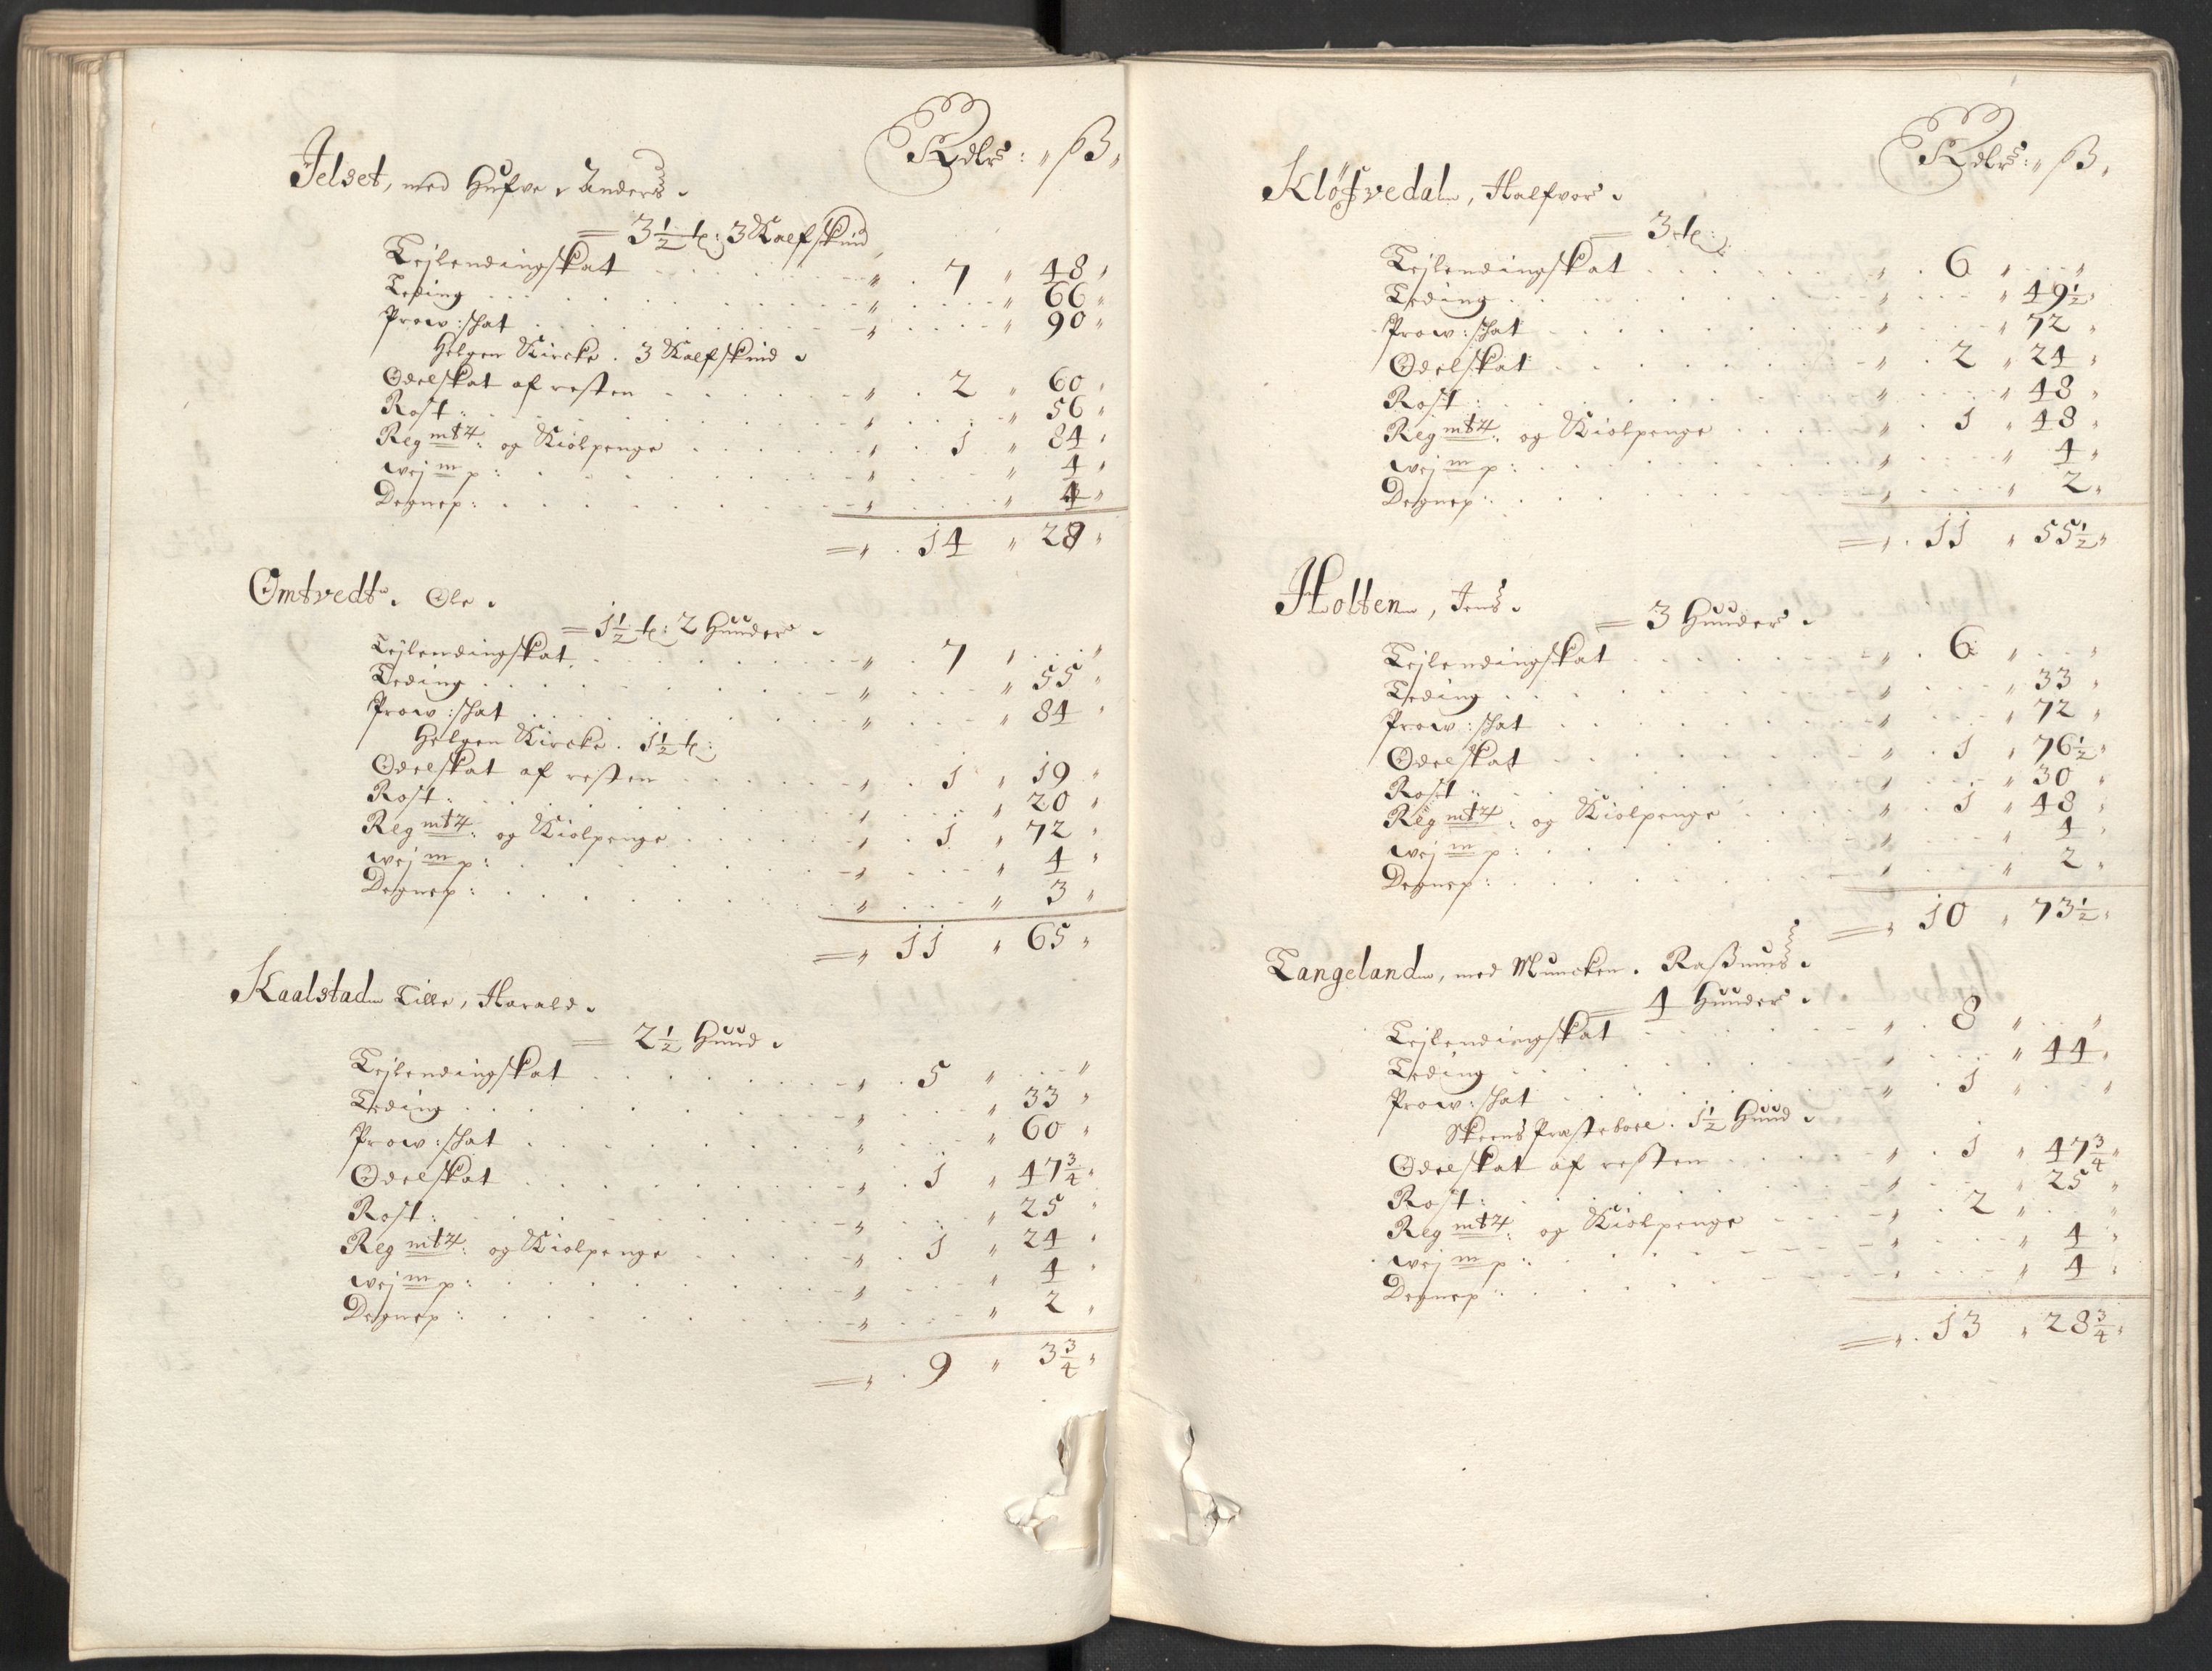 Rdlr: ß
Jelset, med Hufve, Anders.
= 3 1/2 t: 3 Kalfskind
Lejlendingskat 7 48
Leding 66
Prow:skat 90
Helgen Kircke. 3 Kalfskind.
Odelskat af resten 2 60
Rost: 56
Regmt4: og Kiolpenge 1 84
wejmp: 4
Degnep: 4
= 14 28
Omtvedt. Ole.
= 1 1/2 t: 2 Huuder.
Lejlendingskat 7
Leding 55
Prow:skat 84
Helgen Kircke. 1 1/2 t:
Odelskat af resten 1 19
Rost: 20
Regmt4: og Kiolpenge 1 72
wejmp: 4
Degnep: 3
= 11 65
Kaalstad Lille, Harald.
= 2 1/2 Huud.
Lejlendingskat 5
Leding 33
Prow:skat 60
Odelskat 1 47 3/4
Rost: 25
Regmt4: og Kiolpenge 1 24
wejmp: 4
Degnep: 2
= 9 3 3/4
Rdlr: ß
Kløfvedal, Halfvor.
= 3 t:
Lejlendingskat 6
Leding 49 1/2
Prow:skat 72
Odelskat 2 24
Rost: 48
Regmt4: og Kiolpenge 1 48
wejmp: 4
Degnep: 2
= 11 55 1/2
Holten, Jens.
= 3 Huuder.
Lejlendingskat 6
Leding 33
Prow:skat 72
Odelskat 1 76 1/2
Rost: 30
Regmt4: og Kiolpenge 1 48
wejmp: 4
Degnep: 2
= 10 73 1/2
Langeland, med Muncken. Raßmus.
= 4 Huuder.
Lejlendingskat 8
Leding 44
Prow:skat 1
Skeens Præsteboel. 1 1/2 Huud.
Odelskat af resten 1 47 3/4
Rost: 25
Regmt4: og Kiolpenge 2
wejmp: 4
Degnep: 4
= 13 28 3/4